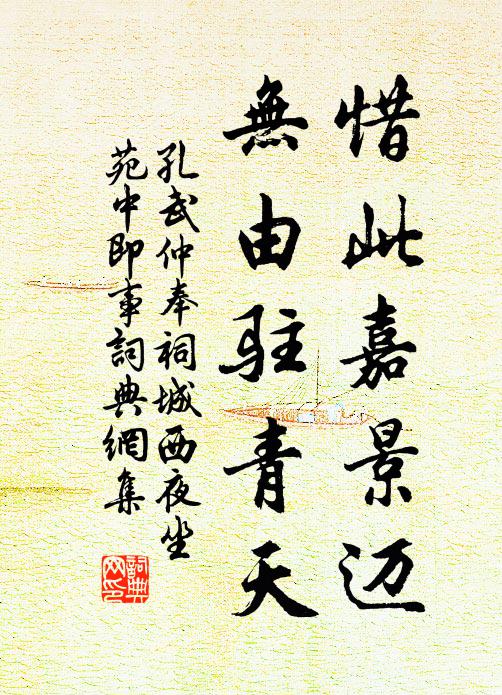 惜此嘉景迈
無由駐青天
孔武仲奉祠城西夜坐
苑中即事詞典網集
詞典网印